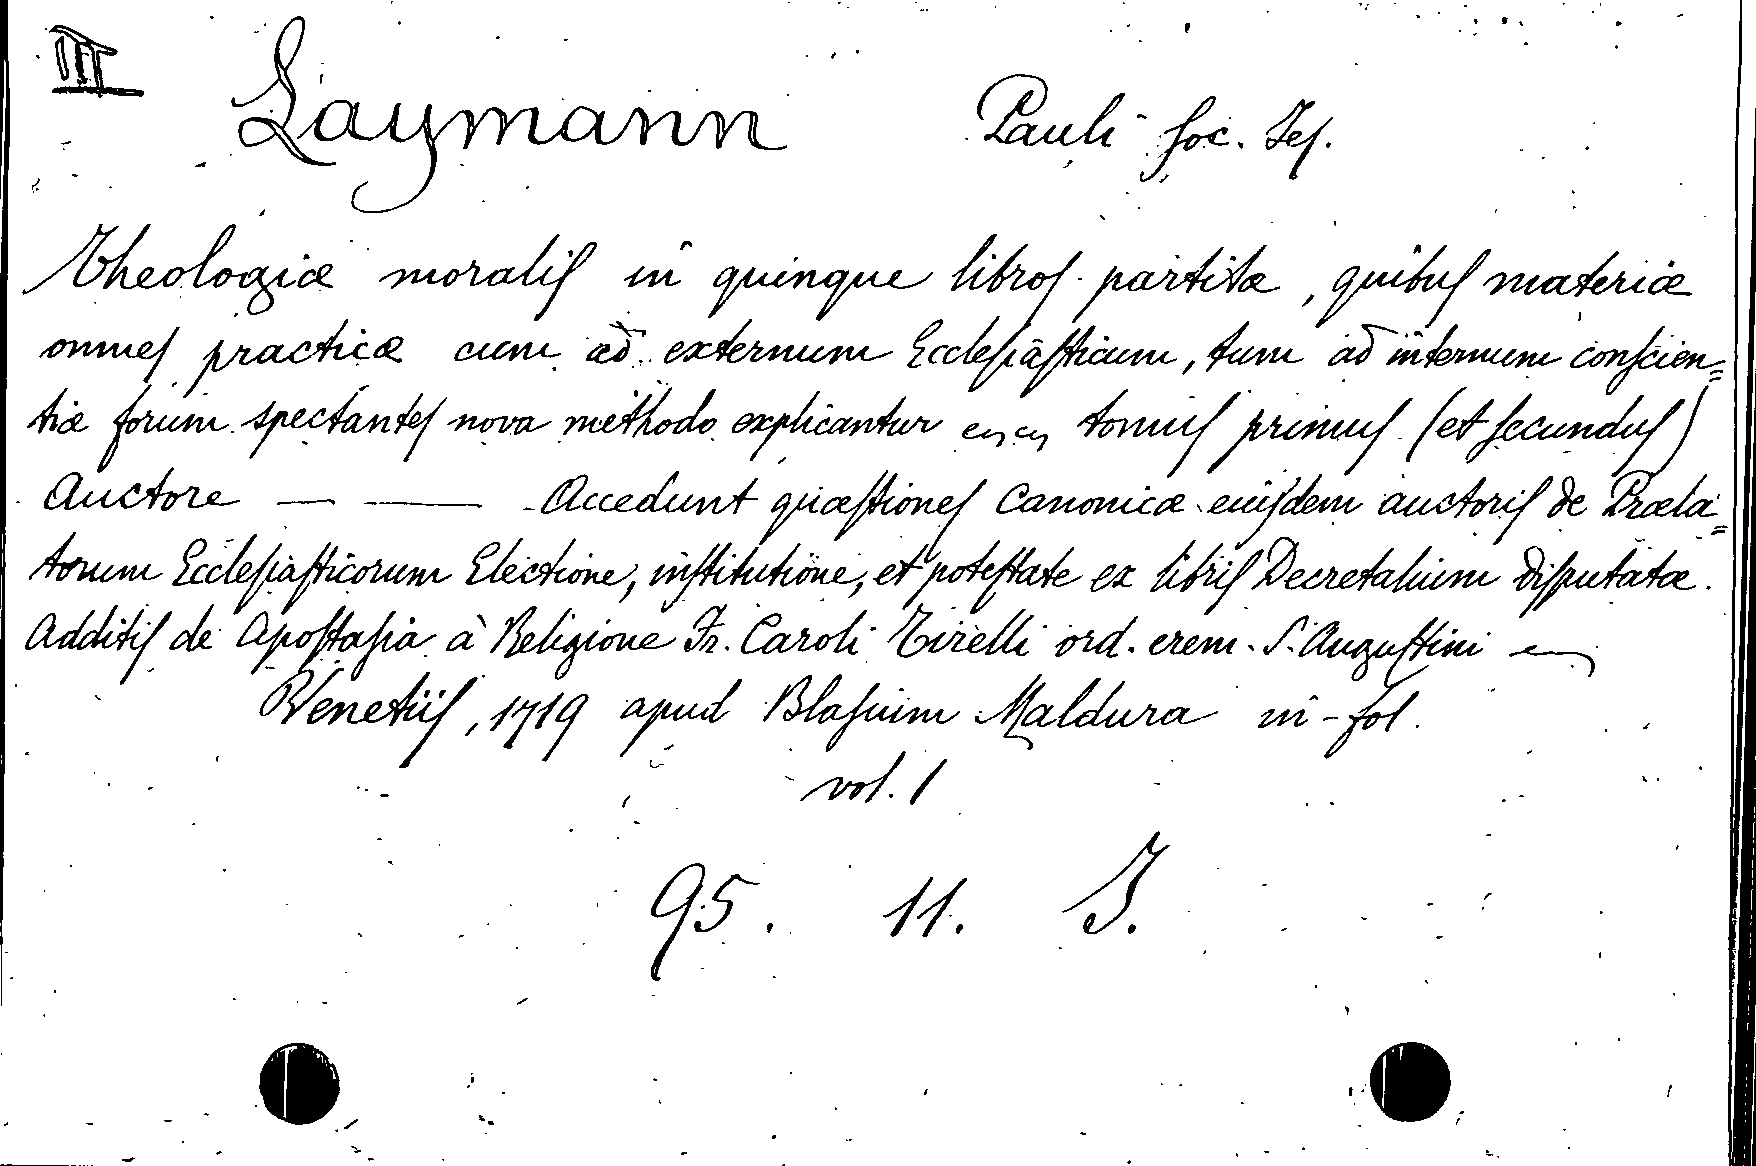 III
Laymann Pauli Soc. Jes.
Theologiæ moralis in quinque libros partita, quibus materiæ
omnes practicæ cum ad externum Ecclesiasticum, tum ad internum conscien=
tiæ forum spectantes nova methodo explicantur tomus primus (et secundus)
Auctore — — Accedunt quæstiones Canonicæ eiusdem auctoris de Præla=
torum Ecclesiasticorum Electione, institutione, et potestate ex libris Decretalium disputatæ.
Additis de Apostasia à Religione Fr. Caroli Tirelli ord. erem. S. Augustini
Venetiis, 1719 apud Blasium Maldura in-fol.
vol. 1
95. 11. J.